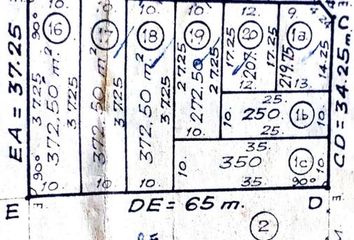 10. 10. 10. 10. 12. 9.
16 17 18 19 20 1a C
90°
EA = 37.25
37.25
372.50 m.²
37.25
372.50 m.²
37.25
372.50 m.²
27.25
272.50
17.25
17.25
207.
219.75
14.25
CD = 34.25 m.
12. 13.
25.
10. 250. 10. 1b
10. 25.
35.
10. 350 10. 1c
90° 10. 10. 10. 35. 90°
E DE = 65 m. D
2